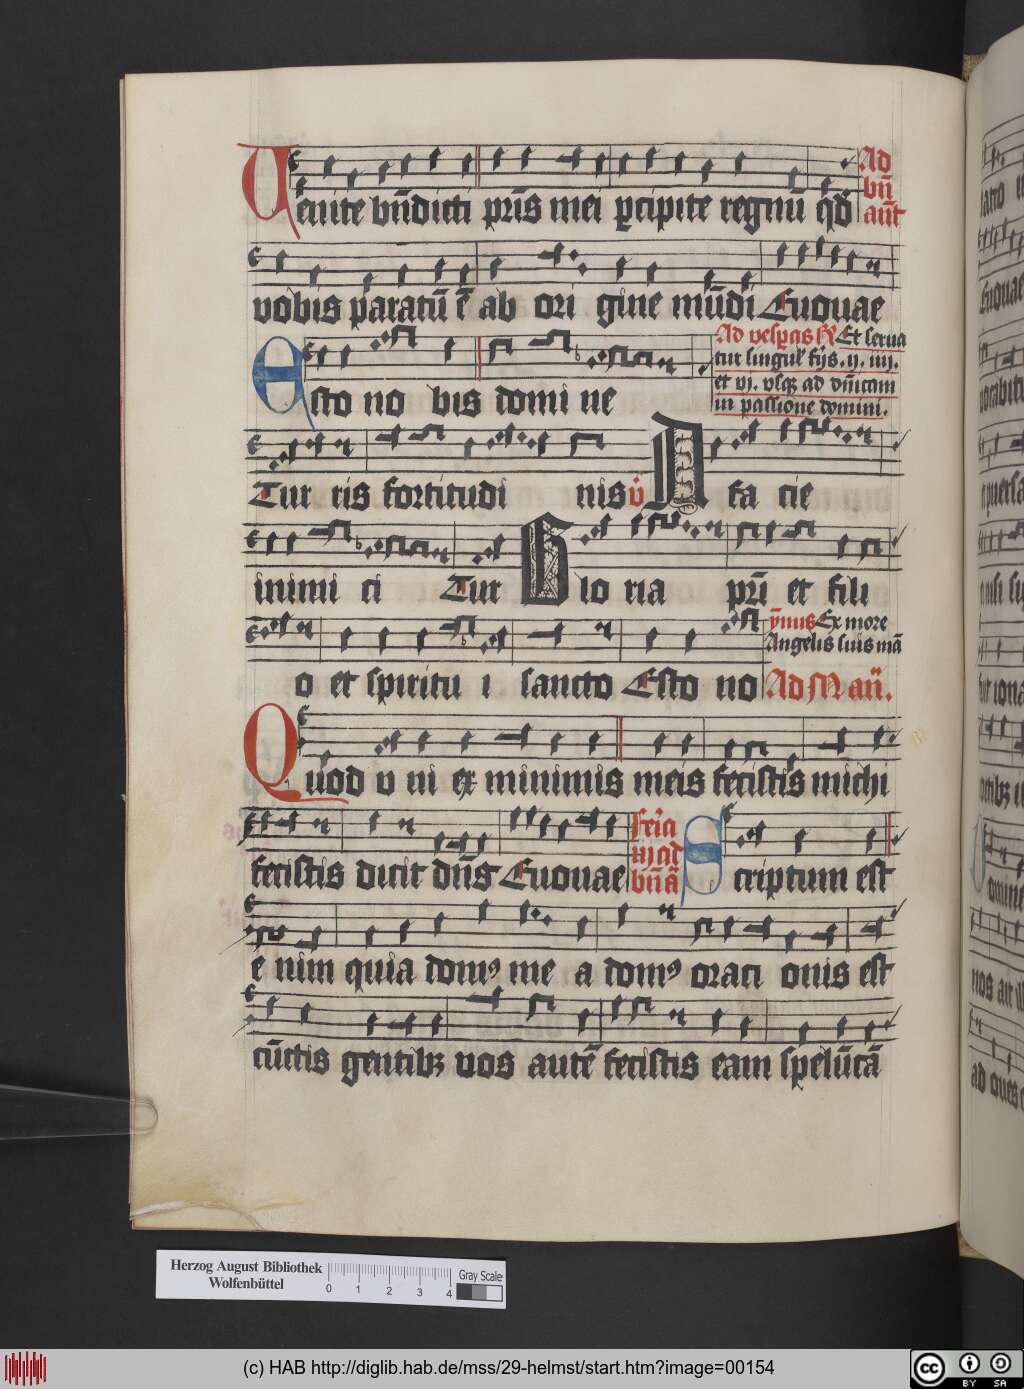 Uenite bn̄dicti pr̄is mei ꝑcipite regnū qd̄ Ad
bn̄
aūt
vobis paratū ē ab ori gine mūdi Euouae
Esto no bis domi ne
Ad vesꝑas R Et serua
tur singul' fijs . ij . iiij .
et vi . vsqꝫ ad dn̄icam
in passione domini .
Tur ris fortitudi nis v̄ A fa cie
inimi ci Tur Glo ria pr̄i et fili
o et spiritu i sancto Esto no
ȳnus Ex more
Angelis suis mā
Ad Maū .
Quod v ni ex minimis meis fecistis michi
fecistis dicit dn̄s Euouae feria
iij ad
bn̄ā
Scriptum est
e nim quia domꝰ me a domꝰ oraci onis est
cūctis gentibꝫ vos autē fecistis eam spelūcā
Herzog August Bibliothek
Wolfenbüttel
0 1 2 3 4
Gray Scale
(c) HAB http://diglib.hab.de/mss/29-helmst/start.htm?image=00154
cc BY SA